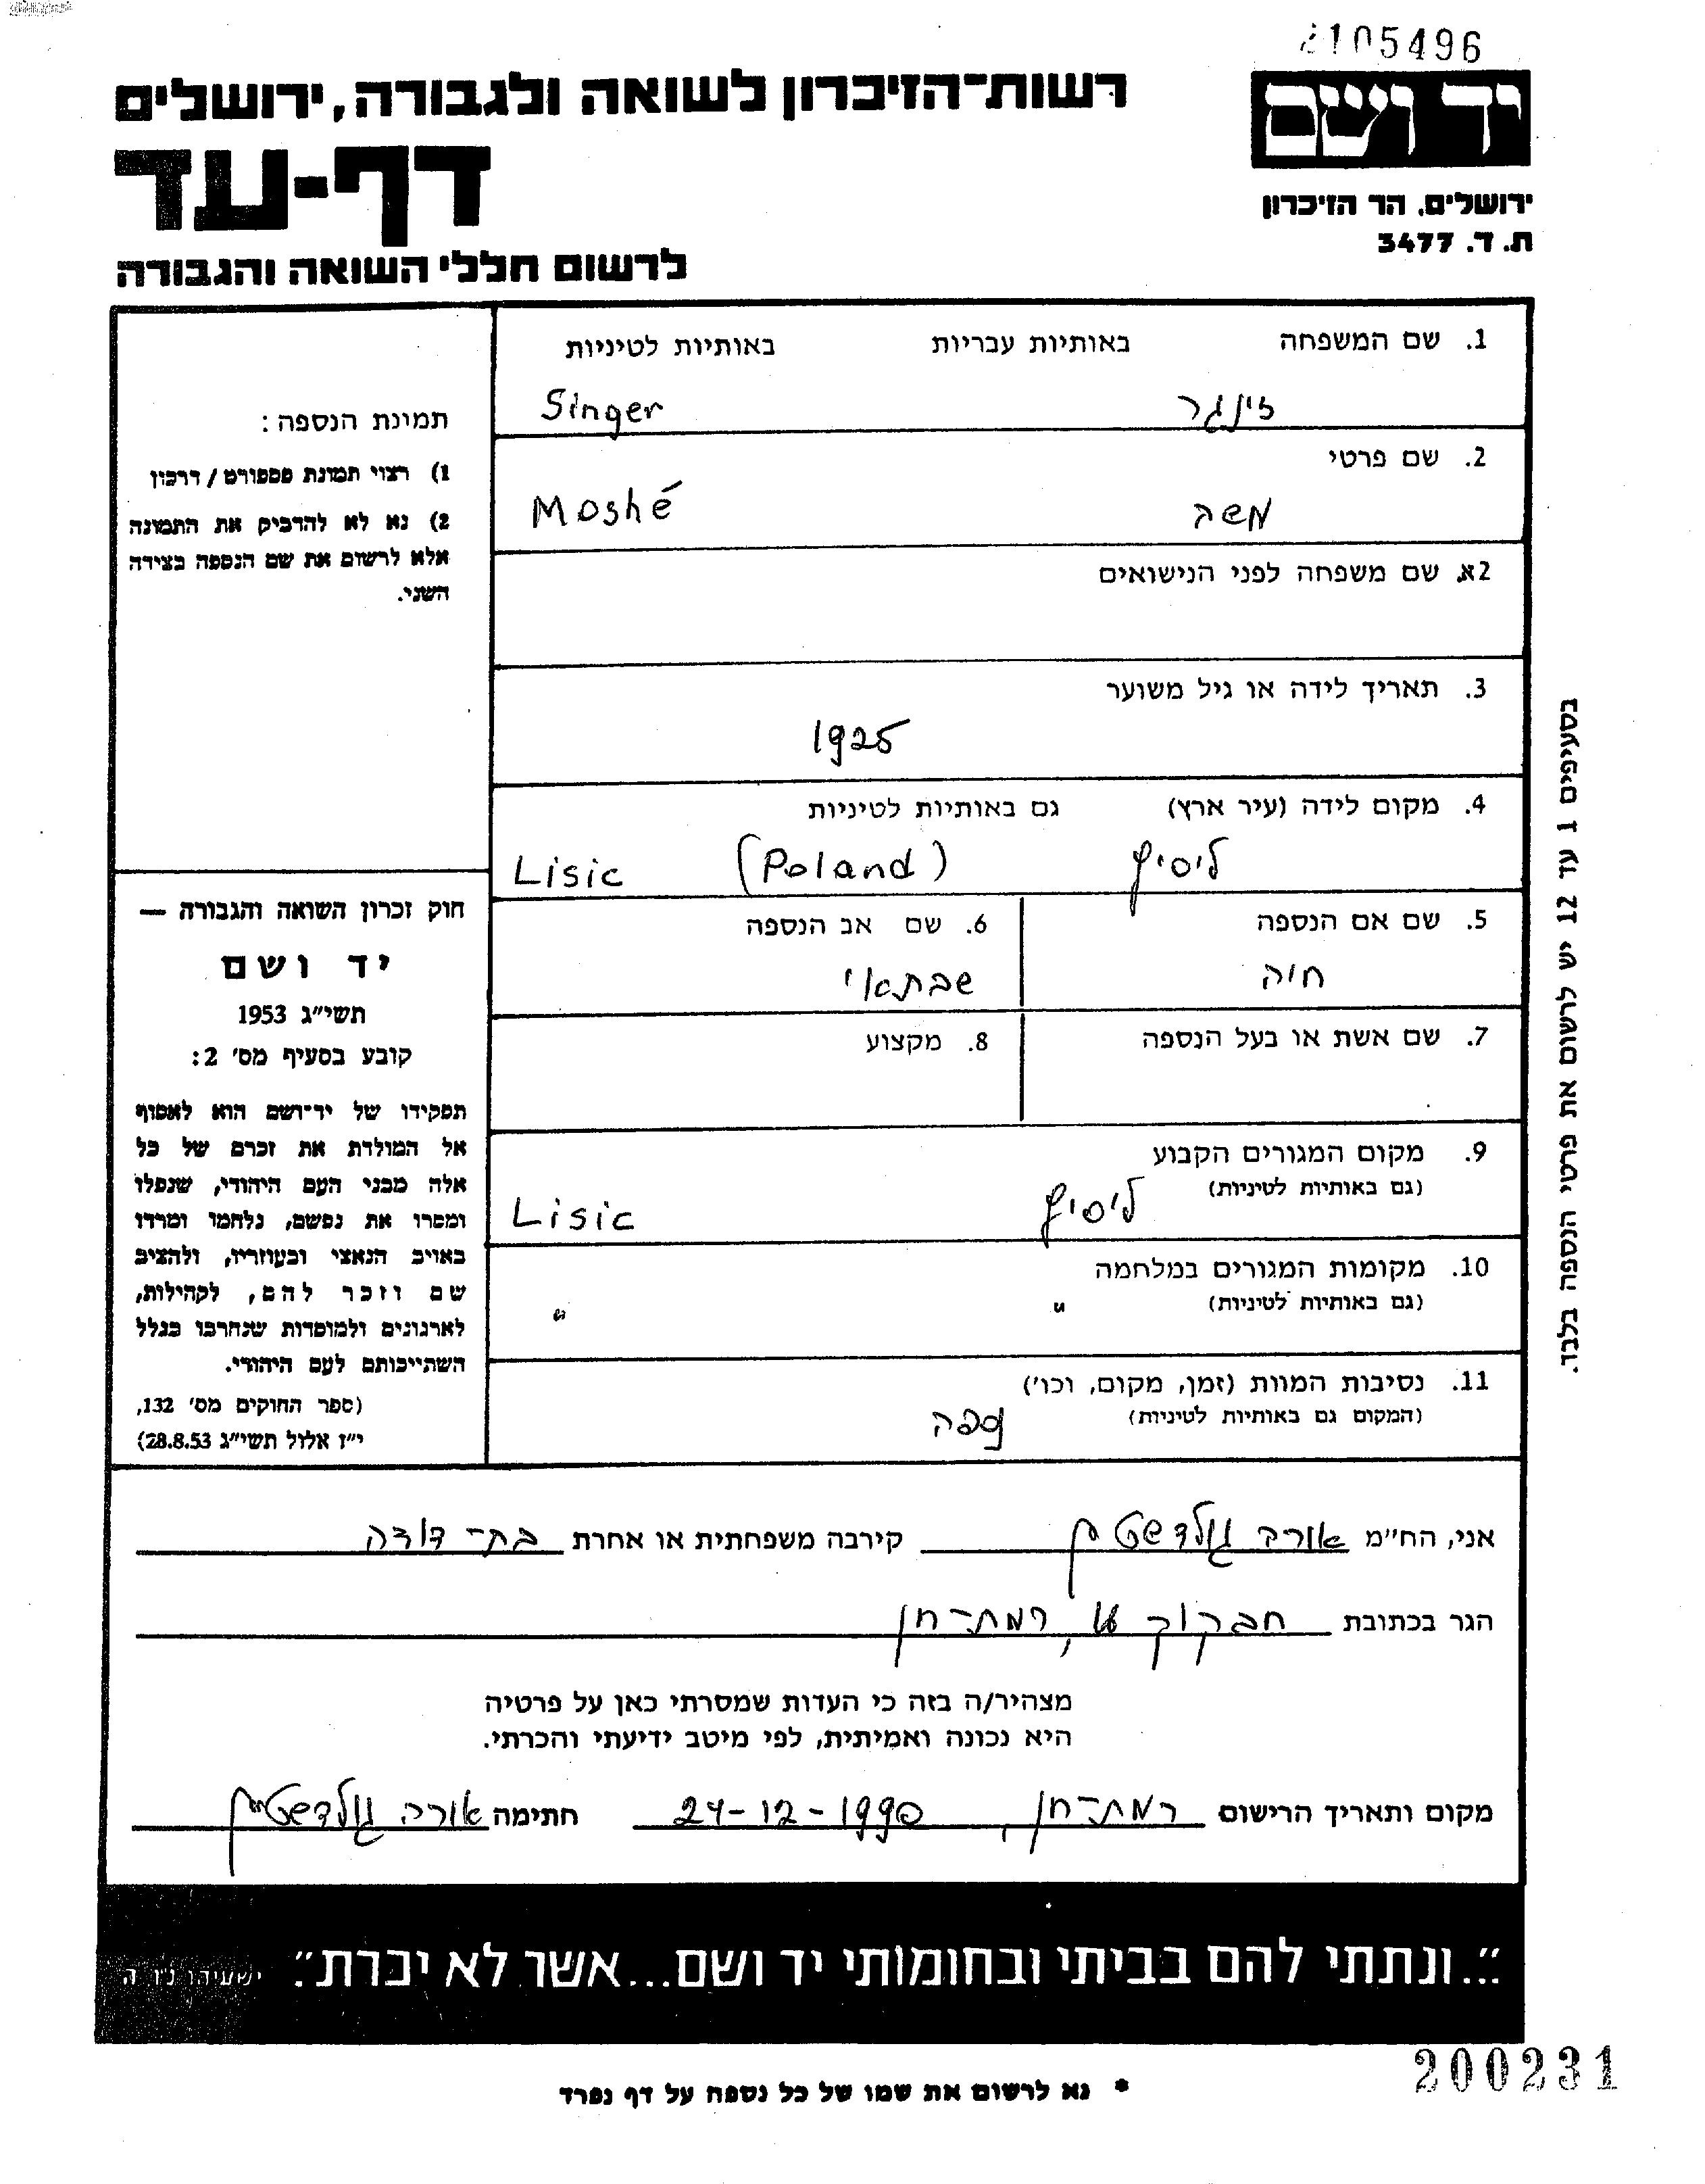 2105496
רשות־הזיכרון לשואה ולגבורה, ירושלים
יד ושם
דף-עד
ירושלים, הר הזיכרון
ת. ד. 3477
לרשום חללי השואה והגבורה
1. שם המשפחה באותיות עבריות באותיות לטיניות
זינגר Singer
2. שם פרטי
משה Moshé
2א. שם משפחה לפני הנישואים
3. תאריך לידה או גיל משוער
1925
4. מקום לידה (עיר ארץ) גם באותיות לטיניות
ליסיץ (Poland) Lisic
5. שם אם הנספה 6. שם אב הנספה
חיה שבתאי
7. שם אשת או בעל הנספה 8. מקצוע
9. מקום המגורים הקבוע
(גם באותיות לטיניות)
ליסיץ Lisic
10. מקומות המגורים במלחמה
(גם באותיות לטיניות)
" "
11. נסיבות המוות (זמן, מקום, וכו')
(המקום גם באותיות לטיניות)
נספה
תמונת הנספה:
1) רצוי תמונת פספורט / דרכון
2) נא לא להדביק את התמונה
אלא לרשום את שם הנספה בצידה
השני.
חוק זכרון השואה והגבורה —
יד ושם
תשי"ג 1953
קובע בסעיף מס' 2:
תפקידו של יד־ושם הוא לאסוף
אל המולדת את זכרם של כל
אלה מבני העם היהודי, שנפלו
ומסרו את נפשם, נלחמו ומרדו
באויב הנאצי ובעוזריו, ולהציב
שם וזכר להם, לקהילות,
לארגונים ולמוסדות שנחרבו בגלל
השתייכותם לעם היהודי.
(ספר החוקים מס' 132,
י"ז אלול תשי"ג 28.8.53)
בסעיפים 1 עד 12 יש לרשום את פרטי הנספה בלבד.
אני, הח"מ אורה גולדשטין קירבה משפחתית או אחרת בת-דודה
הגר בכתובת חבקוק, רמת-חן
מצהיר/ה בזה כי העדות שמסרתי כאן על פרטיה
היא נכונה ואמיתית, לפי מיטב ידיעתי והכרתי.
מקום ותאריך הרישום רמת-חן, 24-12-1990 חתימה אורה גולדשטיין
"...ונתתי להם בביתי ובחומותי יד ושם...אשר לא יכרת". ישעיהו נ"ו ה
200231
* נא לרשום את שמו של כל נספה על דף נפרד